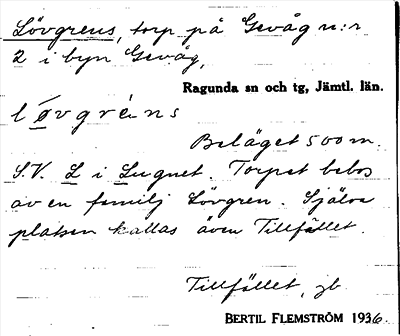 Lövgrens, torp på Gevåg n:r
2 i byn Gevåg,
Ragunda sn och tg, Jämtl. län.
lövgréns
Beläget 500 m.
S.V. L i Lugnet. Torpet bebos
av en familj Lövgren. Själva
platsen kallas även Tillfället.
Tillfället, gb
BERTIL FLEMSTRÖM 1936.